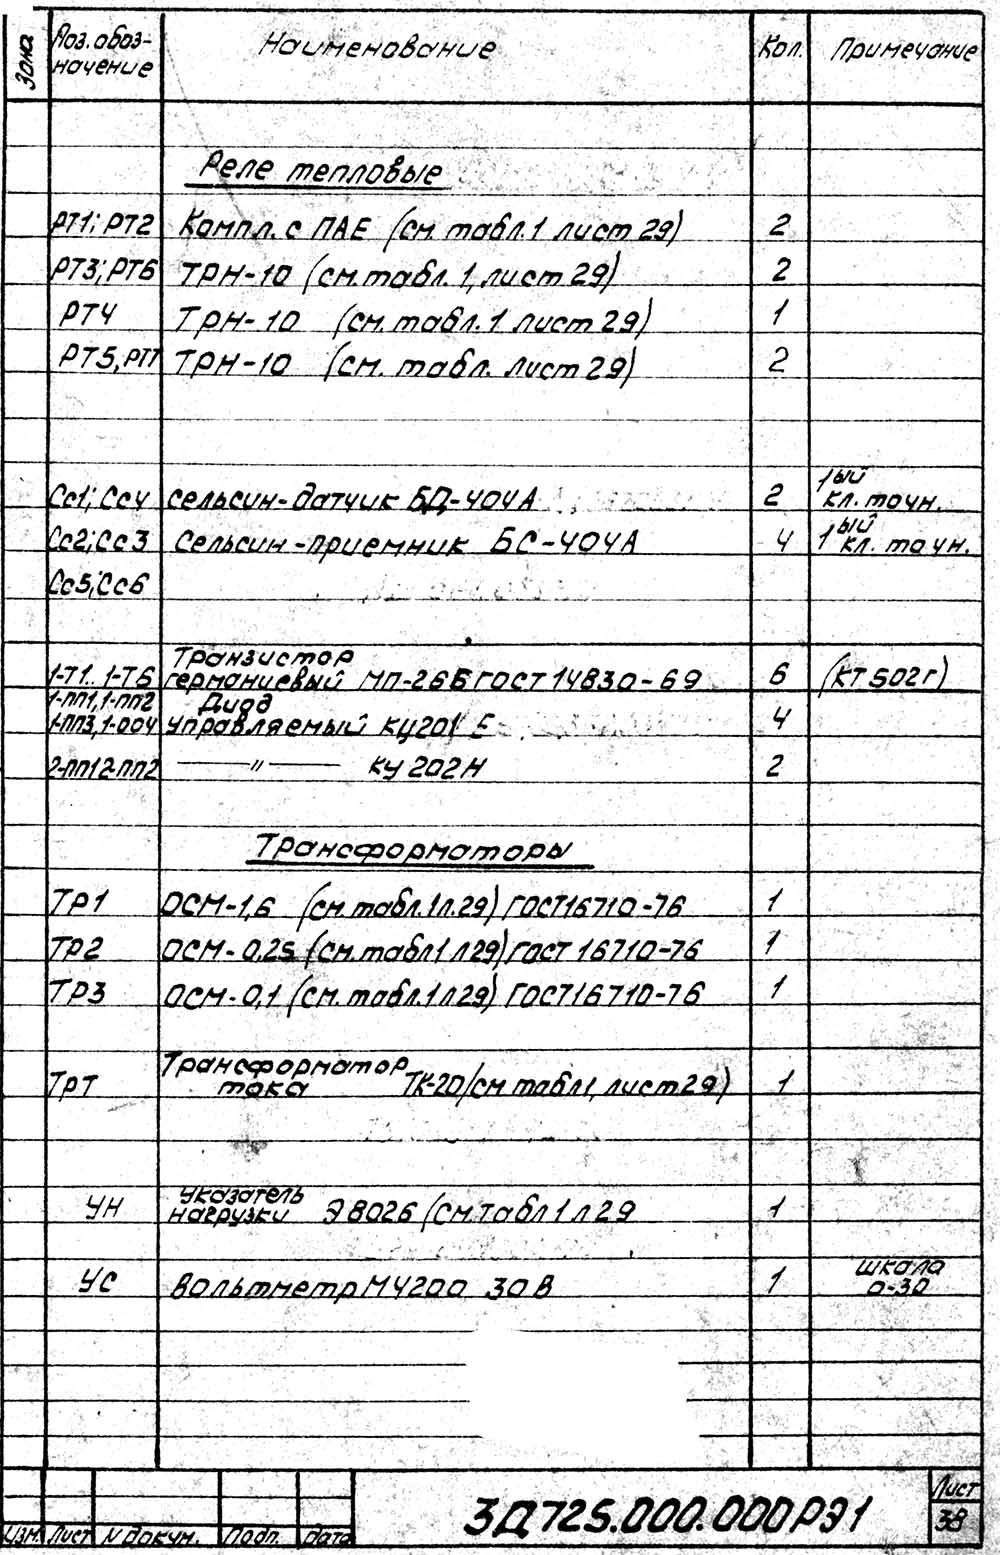 Зона
Поз. обоз-
начение
Наименование
Кол.
Примечание
Реле тепловые
РТ1; РТ2 Компл. с ПАЕ (см. табл.1 лист 29) 2
РТ3; РТ6 ТРН-10 (см. табл. 1, лист 29) 2
РТ4 ТРН-10 (см. табл. 1 лист 29) 1
РТ5, РТ7 ТРН-10 (см. табл. лист 29) 2
Сс1; Сс4 сельсин-датчик БД-404А 2 1ый кл. точн.
Сс2; Сс3 Сельсин-приемник БС-404А 4 1ый кл. точн.
Сс5; Сс6
Транзистор
1-Т1.. 1-Т6 германиевый МП-26Б ГОСТ 14830-69 6 (КТ502г)
1-ПП1, 1-ПП2 Диод
1-ПП3, 1-ОО4 управляемый КУ201 Е 4
2-ПП1 2-ПП2 —— " —— КУ 202Н 2
Трансформаторы
ТР1 ОСМ-1,6 (см. табл. 1 л. 29) ГОСТ 16710-76 1
ТР2 ОСМ-0.25 (см. табл1 л29) ГОСТ 16710-76 1
ТР3 ОСМ-0,1 (см. табл. 1 л29) ГОСТ 16710-76 1
Трансформатор
ТрТ тока ТК-20 (см табл1, лист 29) 1
Указатель
УН нагрузки Э8026 (см. табл 1 л 29 1
УС Вольтметр М4200 30В 1 шкала
0-30
Изм. Лист N докум. Подп. Дата
3Д725.000.000РЭ1
Лист
38